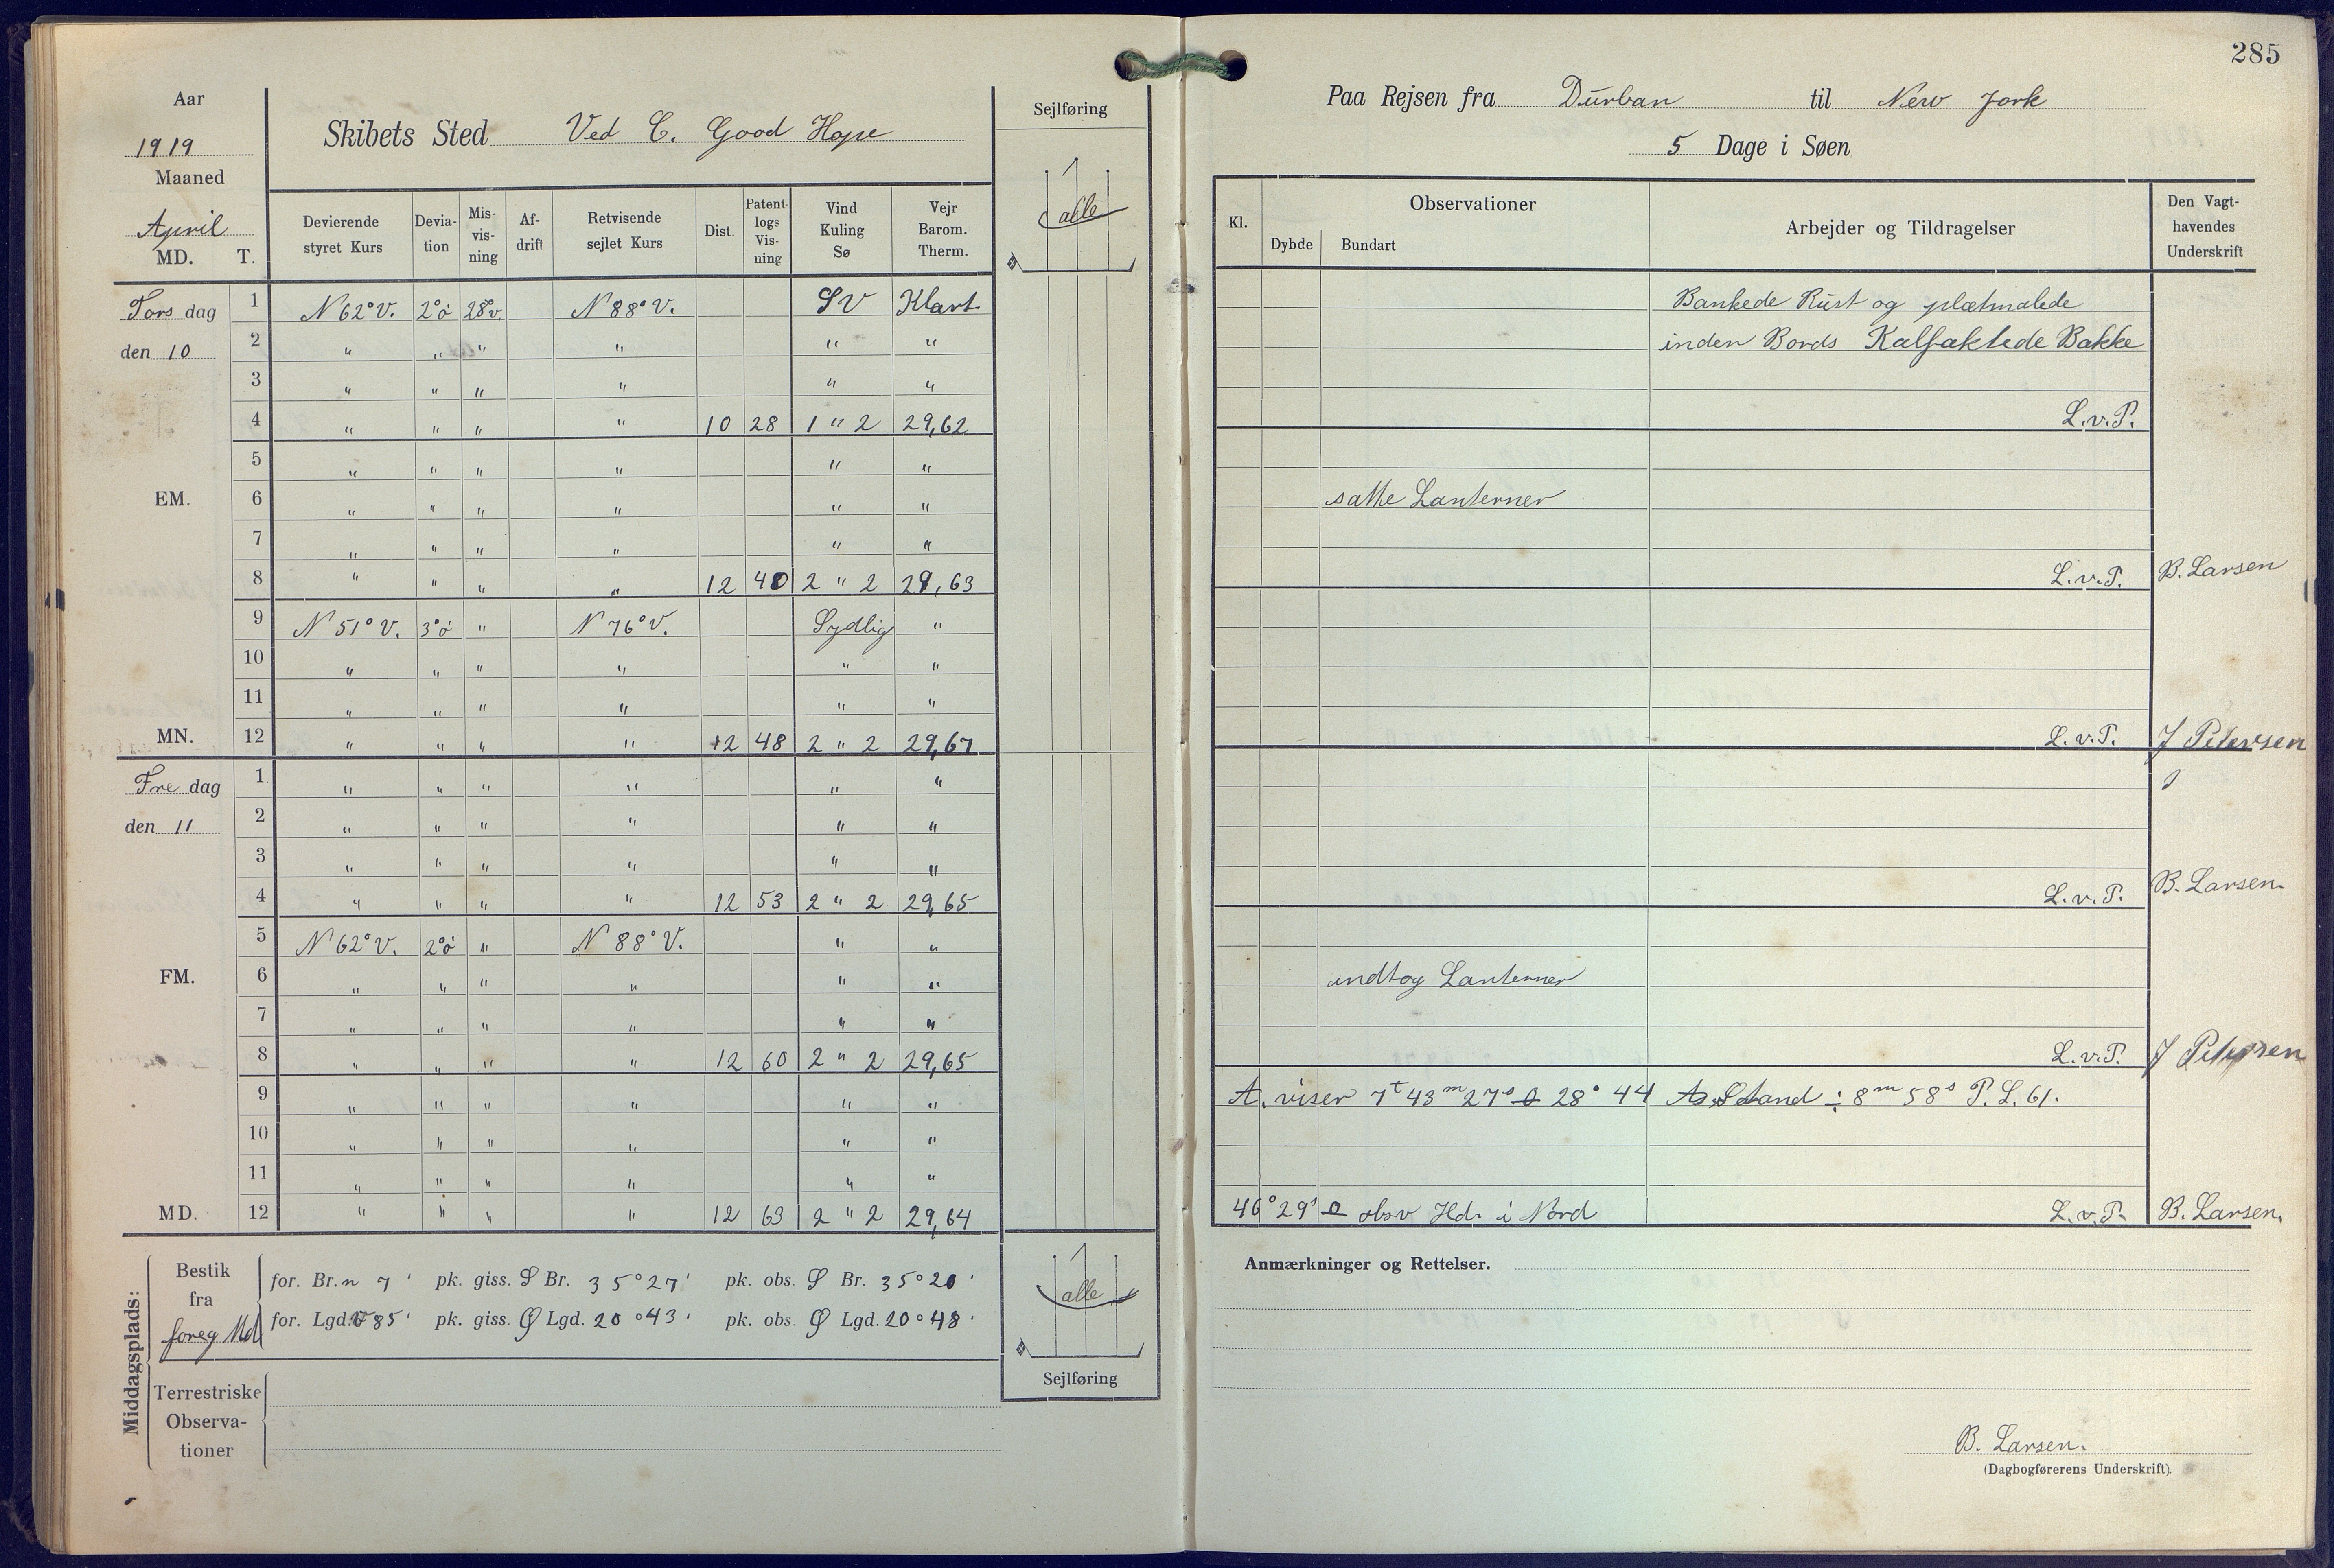 Aar
1919
Maaned
April
MD. T.
Skibets Sted Ved C. Good Hope
Sejlføring
alle
Devierende styret Kurs | Deviation | Misvisning | Afdrift | Retvisende sejlet Kurs | Dist. | Patentlogs Visning | Vind Kuling Sø | Vejr Barom. Therm.
Torsdag 1 N 62° V. 2° ö 28° v. N 88° V. SV Klart
den 10 2 " " " " " "
3 " " " " " "
4 " " " " 10 28 1 " 2 29,62
5 " " " " " "
EM. 6 " " " " " "
7 " " " " " "
8 " " " " 12 40 2 " 2 29,63
9 N 51° V. 3° ö " N 76° V. Sydlig "
10 " " " " " "
11 " " " " " "
MN. 12 " " " " 12 48 2 " 2 29,67
Fredag 1 " " " " " "
den 11 2 " " " " " "
3 " " " " " "
4 " " " " 12 53 2 " 2 29,65
5 N 62° V. 2° ö " N 88° V. " "
FM. 6 " " " " " "
7 " " " " " "
8 " " " " 12 60 2 " 2 29,65
9 " " " " " "
10 " " " " " "
11 " " " " " "
MD. 12 " " " " 12 63 2 " 2 29,64
Middagsplads:
Bestik fra foreg Md
for. Br. n 7 ' pk. giss. S Br. 35° 27' pk. obs. S Br. 35° 20'
for. Lgd. V 85' pk. giss. Ø Lgd. 20° 43' pk. obs. Ø Lgd. 20° 48'
alle
Sejlføring
Terrestriske Observationer
285
Paa Rejsen fra Durban til New York
5 Dage i Søen
Kl. | Observationer | Dybde | Bundart | Arbejder og Tildragelser | Den Vagthavendes Underskrift
Bankede Rust og plætmalede
inden Bords Kalfaktede Bakke
L.v.P.
satte Lanterner
L.v.P. B. Larsen
L.v.P. J Petersen
L.v.P. B. Larsen.
indtog Lanterner
L.v.P. J Petersen
A. viser 7t 43m 27s 28° 44 Stand ÷ 8m 58s P. L. 61.
46° 29' obsv Hd. i Nord L.v.P. B. Larsen.
Anmærkninger og Rettelser.
B. Larsen.
(Dagbogførerens Underskrift).